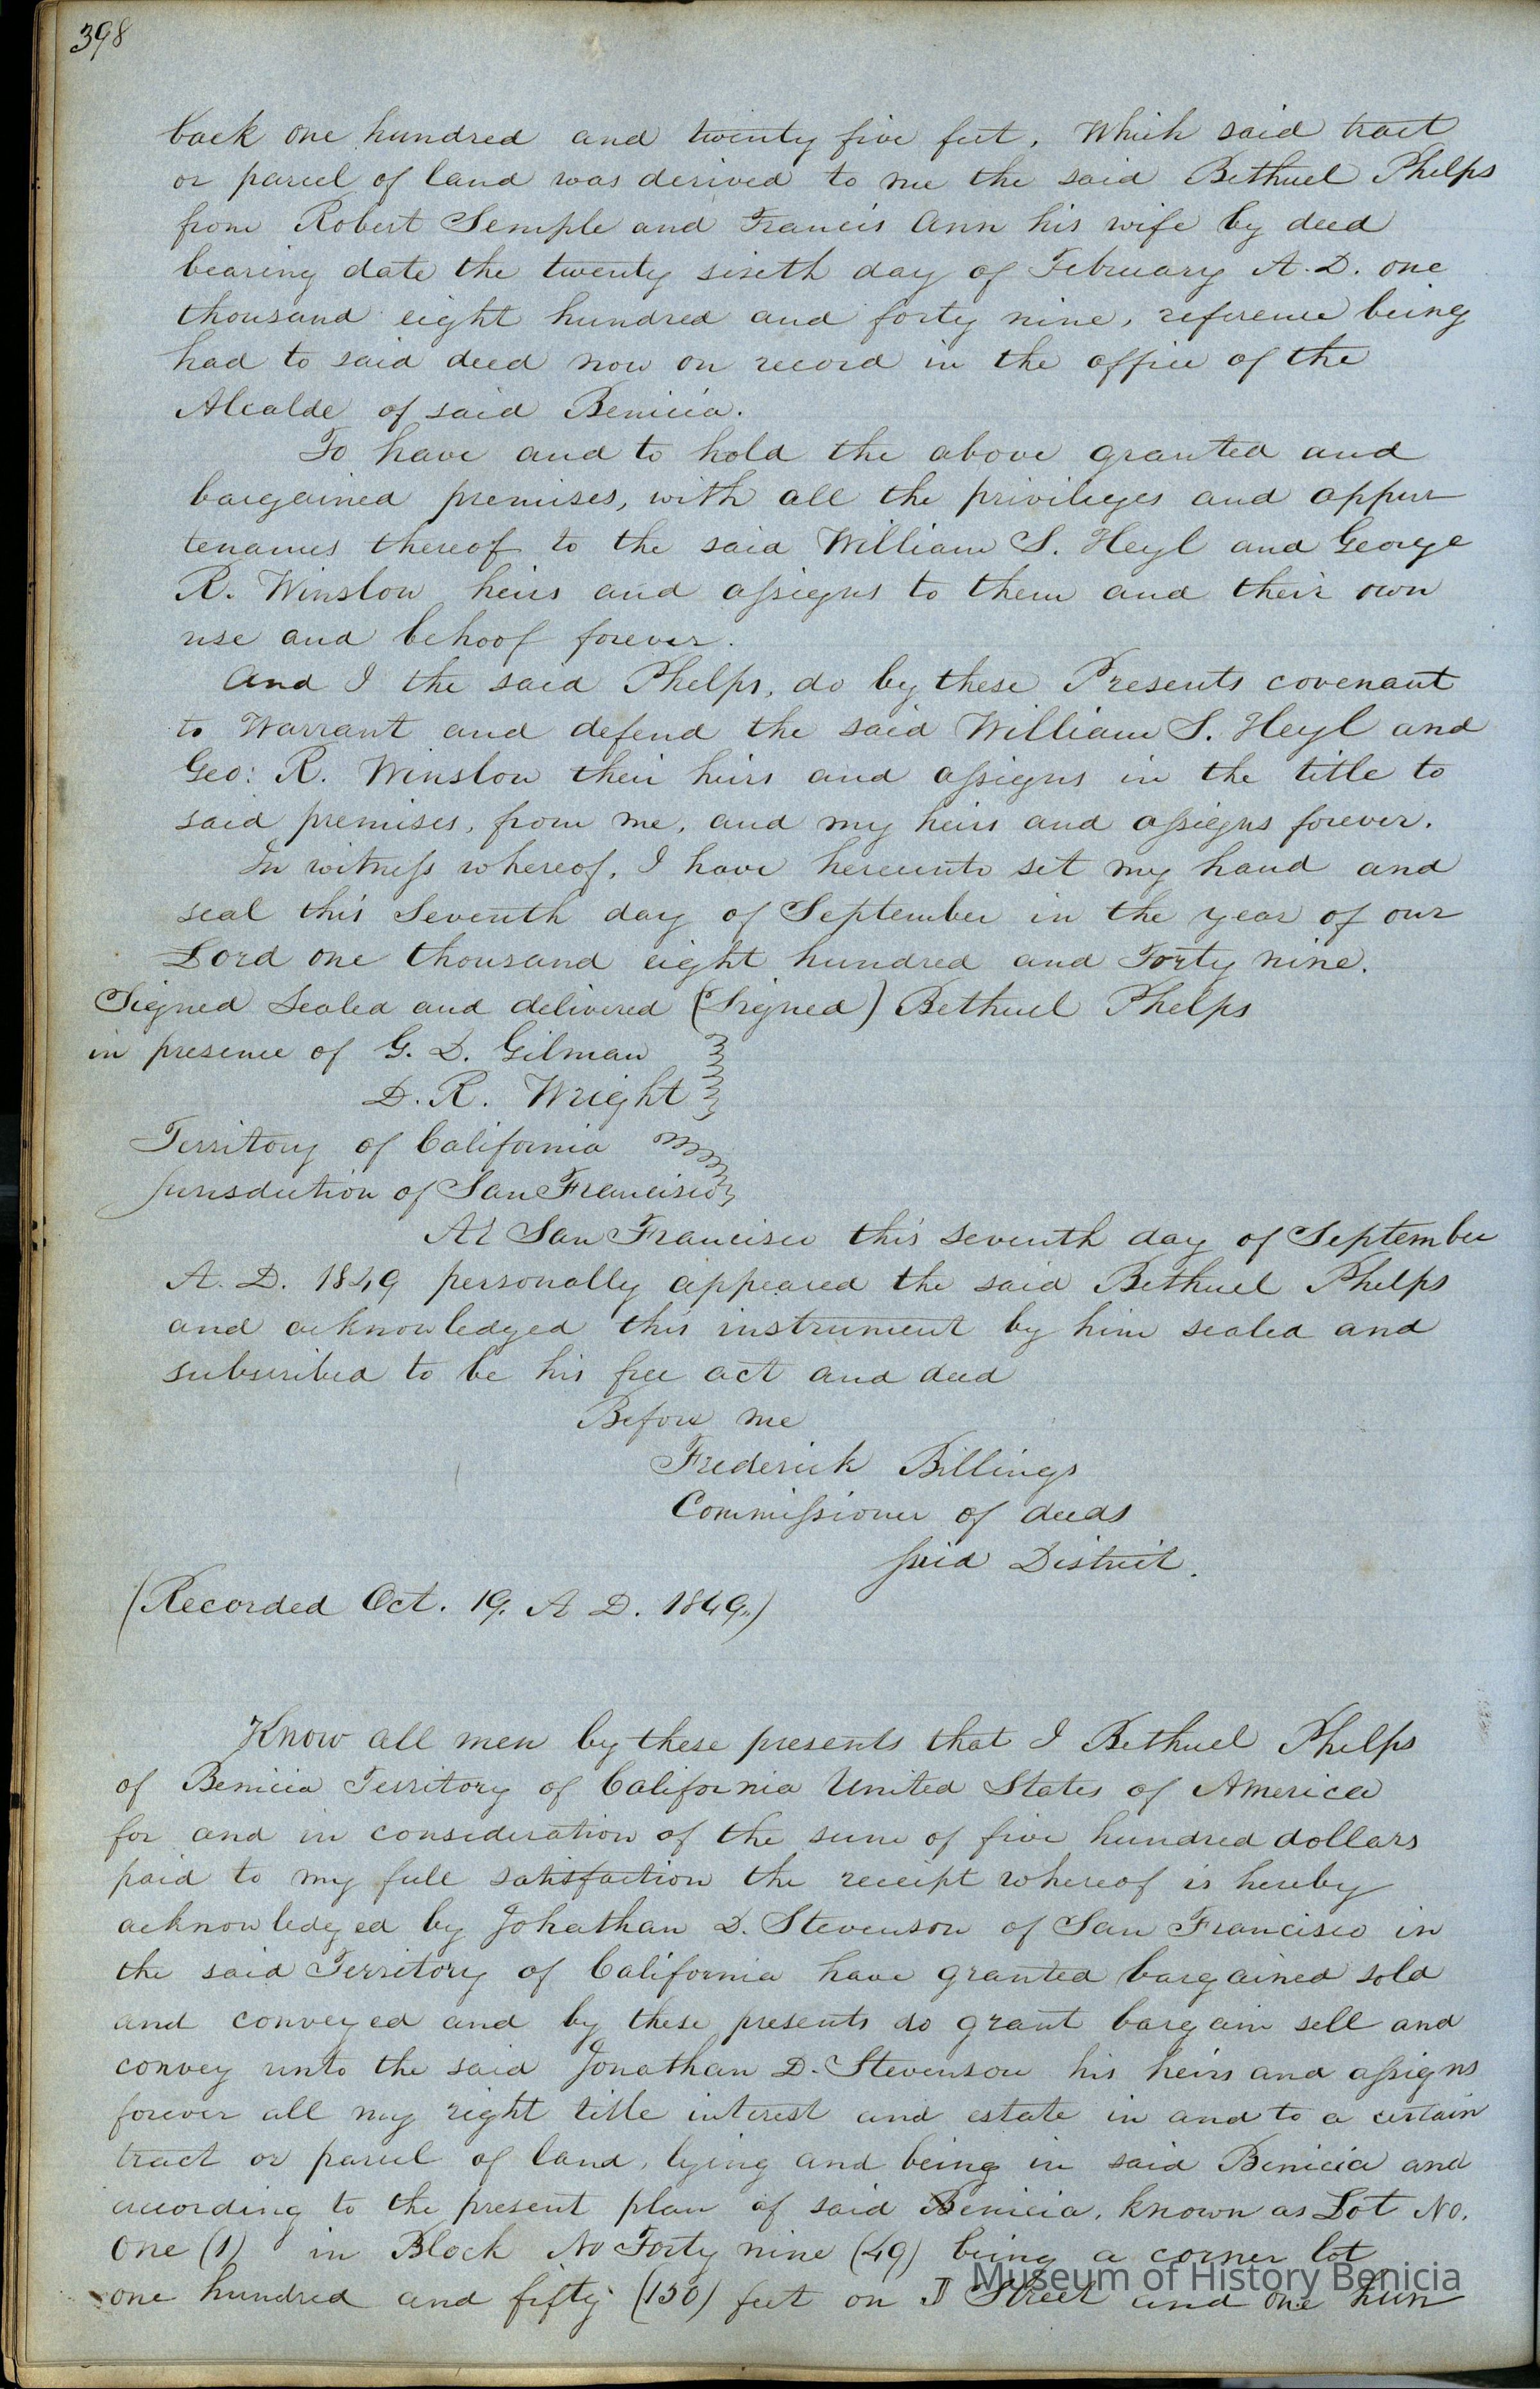 398
back one hundred and twenty five feet, Which said tract
or parcel of land was derived to me the said Bethuel Phelps
from Robert Semple and Francis Ann his wife by deed
bearing date the twenty sixeth day of February A.D. one
thousand eight hundred and forty nine, reference being
had to said deed now on record in the office of the
Alcalde of said Benicia.
To have and to hold the above granted and
bargained premises, with all the privileges and appur
tenances thereof to the said William S. Heyl and George
R. Winslow heirs and assigns to them and their own
use and behoof forever.
And I the said Phelps, do by these Presents covenant
to Warrant and defend the said William S. Heyl and
Geo: R. Winslow their heirs and assigns in the title to
said premises, from me, and my heirs and assigns forever.
In witness whereof, I have hereunto set my hand and
seal this Seventh day of September in the year of our
Lord one thousand eight hundred and Forty nine.
Signed Sealed and delivered (Signed) Bethuel Phelps
in presence of G. D. Gilman
D. R. Wright
Territory of California
Jurisdiction of San Francisco
At San Francisco this seventh day of September
A. D. 1849 personally appeared the said Bethuel Phelps
and acknowledged this instrument by him sealed and
subscribed to be his free act and deed
Before me
Frederick Billings
Commissioner of deeds
said District.
(Recorded Oct. 19. A D. 1849.)
Know all men by these presents that I Bethuel Phelps
of Benicia Territory of California United States of America
for and in consideration of the sum of five hundred dollars
paid to my full satisfaction the receipt whereof is hereby
acknowledged by Johathan D. Stevenson of San Francisco in
the said Territory of California have granted bargained sold
and conveyed and by these presents do grant bargain sell and
convey unto the said Jonathan D. Stevenson his heirs and assigns
forever all my right title interest and estate in and to a certain
tract or parcel of land, lying and being in said Benicia and
according to the present plan of said Benicia, known as Lot No.
One (1) in Block No Forty nine (49) being a corner lot
one hundred and fifty (150) feet on Street and one hun
Museum of History Benicia